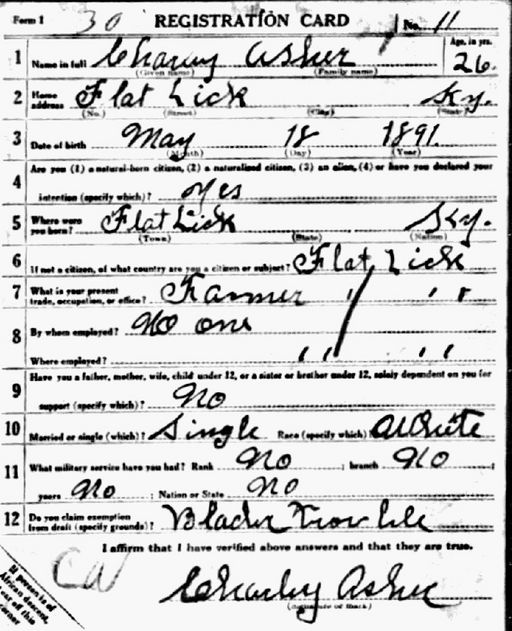 Form 1 30 REGISTRATION CARD No. 11
1 Name in full Charley Asher Age, in yrs. 26
(Given name) (Family name)
2 Home address Flat Lick Ky.
(No.) (Street) (City) (State)
3 Date of birth May 18 1891
(Month) (Day) (Year)
4 Are you (1) a natural-born citizen, (2) a naturalized citizen, (3) an alien, (4) or have you declared your
intention (specify which)? yes
5 Where were you born? Flat Lick Ky.
(Town) (State) (Nation)
6 If not a citizen, of what country are you a citizen or subject? Flat Lick
7 What is your present trade, occupation, or office? Farmer " "
8 By whom employed? No one
Where employed? " "
9 Have you a father, mother, wife, child under 12, or a sister or brother under 12, solely dependent on you for
support (specify which)? No
10 Married or single (which)? Single Race (specify which)? White
11 What military service have you had? Rank No ; branch No ;
years No ; Nation or State No
12 Do you claim exemption from draft (specify grounds)? Blader Trouble
I affirm that I have verified above answers and that they are true.
Charley Asher
(Signature or mark)
If person is of
African descent,
tear off this
corner